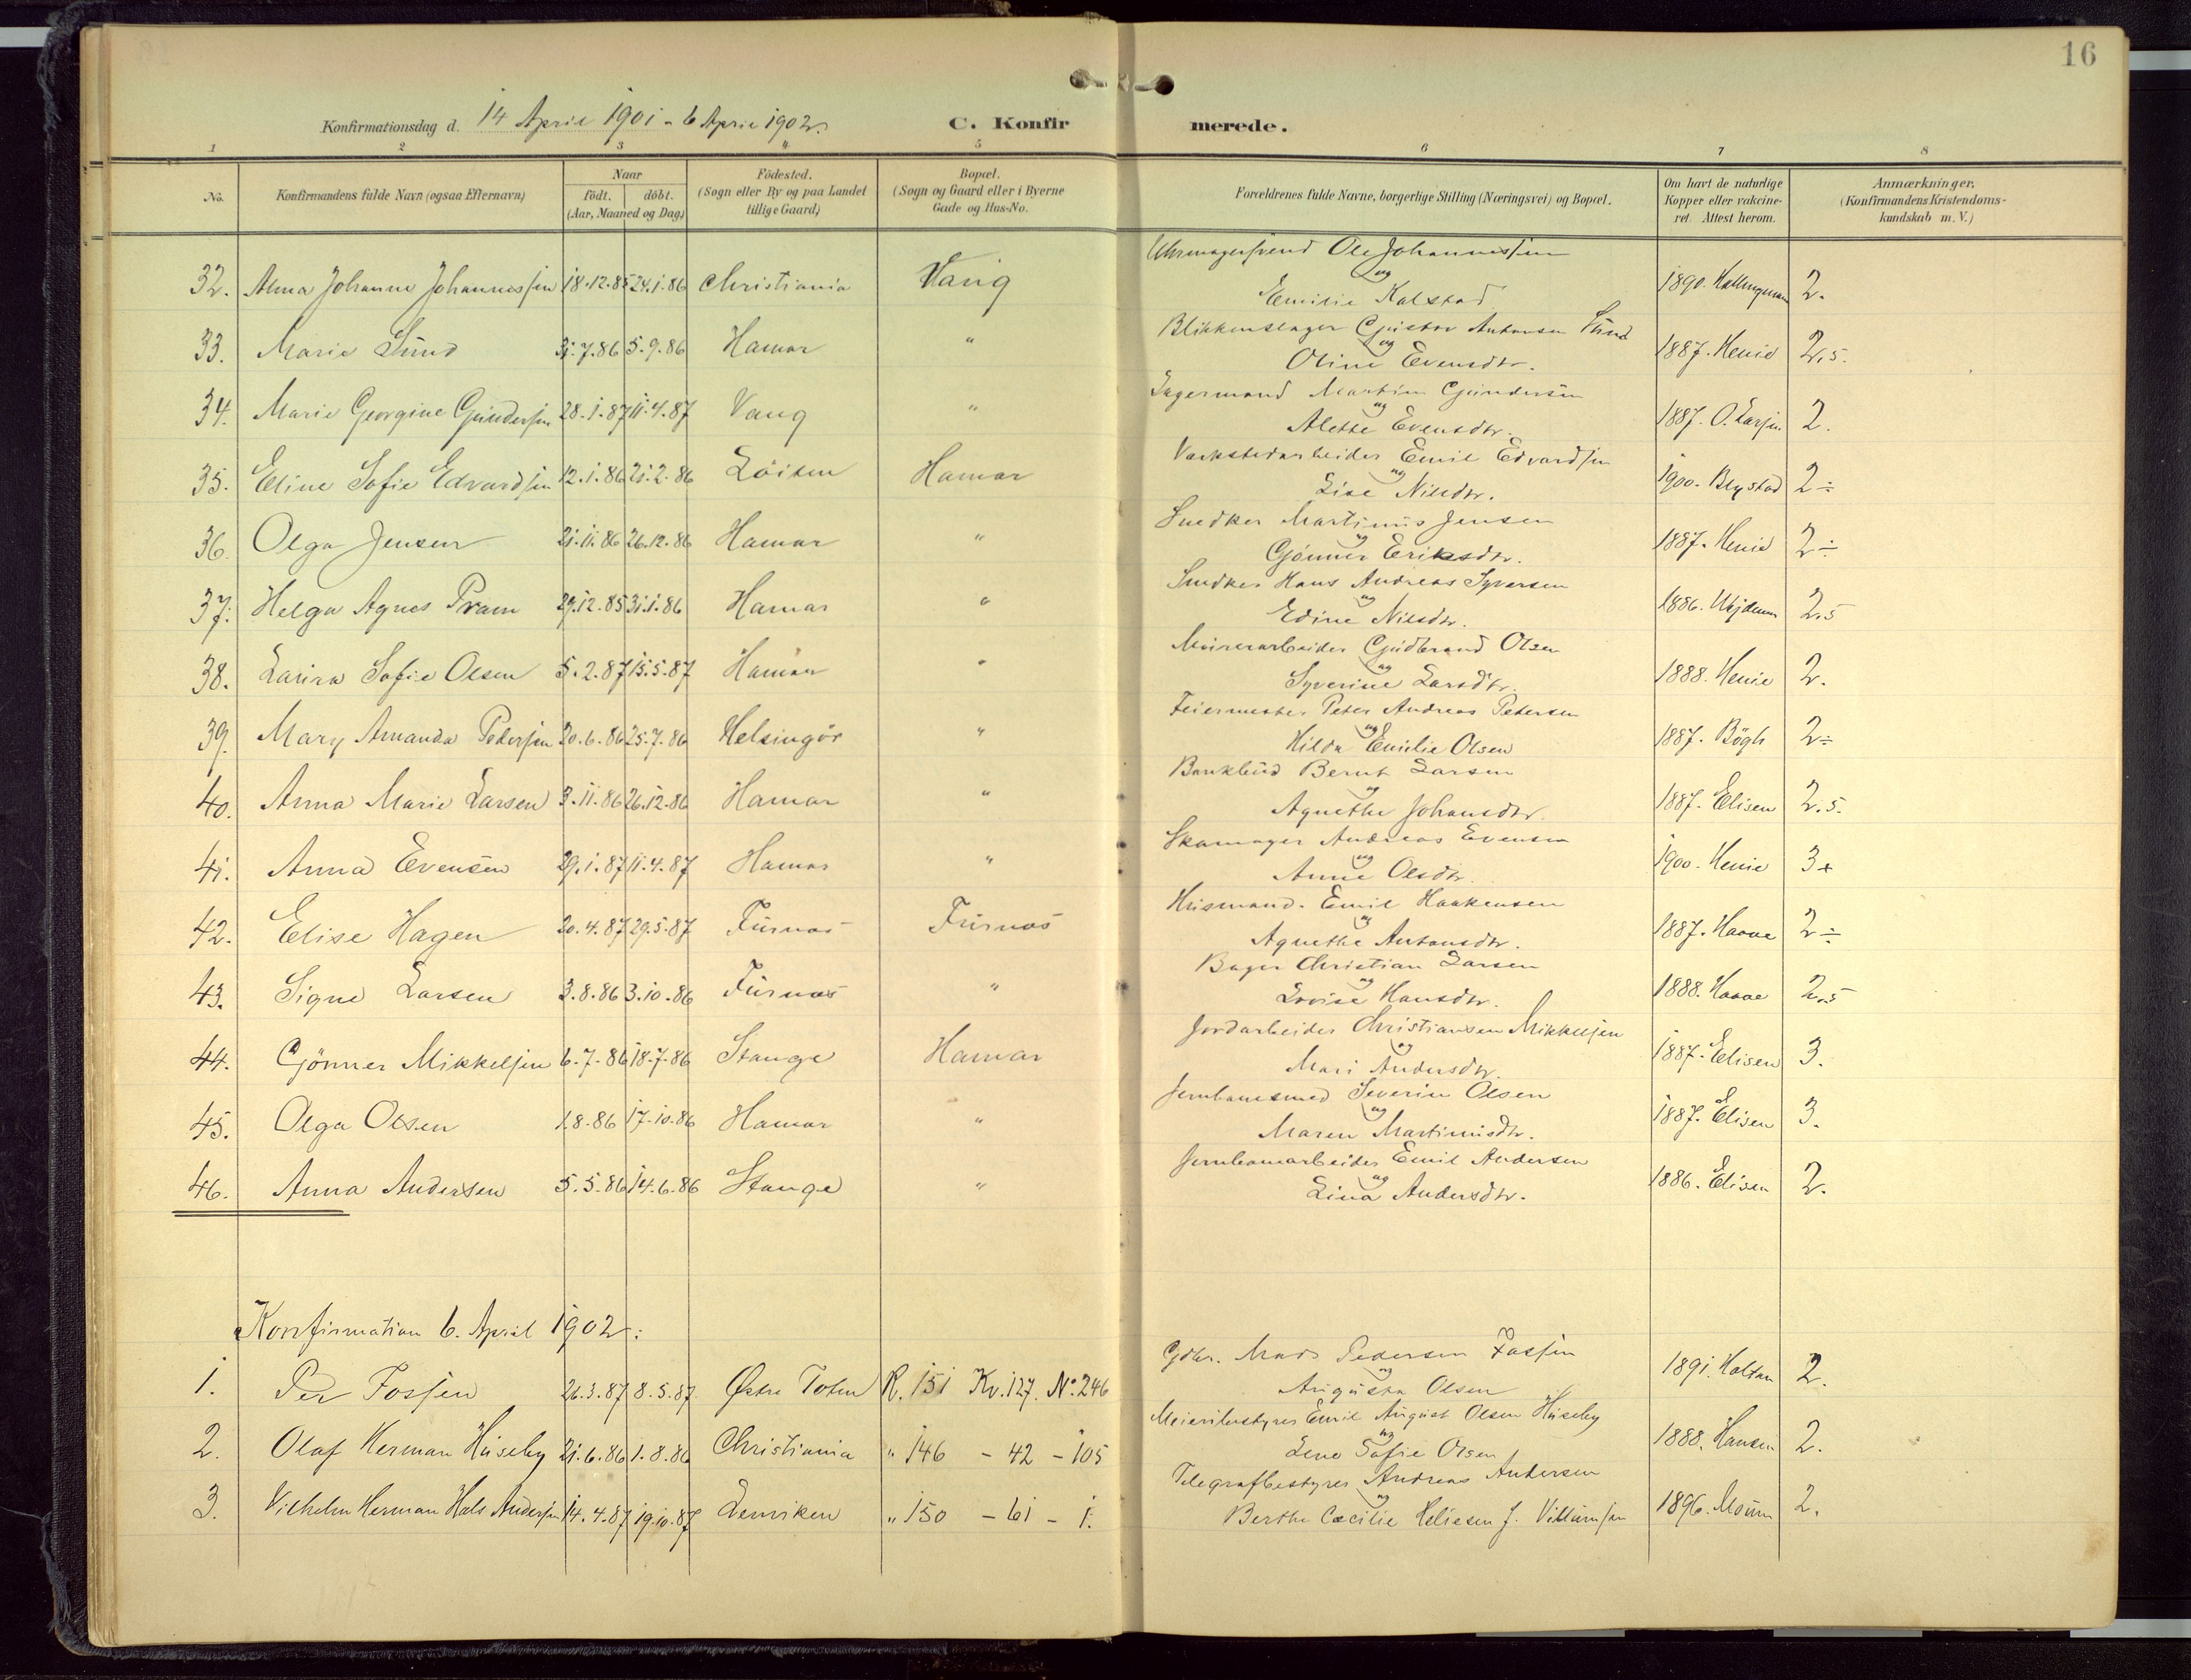 16
Konfirmationsdag d. 14 April 1901 - 6 April 1902.
C. Konfirmerede.
1 2 3 4 5 6 7 8
No. Konfirmandens fulde Navn (ogsaa Efternavn) Naar født. døbt. (Aar, Maaned og Dag) Fødested. (Sogn eller By og paa Landet tillige Gaard) Bopæl. (Sogn og Gaard eller i Byerne Gade og Hus-No. Forældrenes fulde Navne, borgerlige Stilling (Næringsvei) og Bopæl. Om havt de naturlige Kopper eller vakcineret. Attest herom. Anmærkninger. (Konfirmandens Kristendomskundskab m. V.)
32. Alma Johanne Johannessen 18.12.85 24.1.86 Christiania Vang Uhrmagersvend Ole Johannessen og Emilie Kalstad 1890. 2.
33. Marie Lund 31.7.86 5.9.86 Hamar " Blikkenslager Gustav Antonsen Lund og Oline Evensdtr. 1887. Henie 2,5.
34. Marie Georgine Gundersen 28.1.87 11.4.87 Vang " Lagermand Martin Gundersen og Alette Evensdtr. 1887. O. Larsen 2.
35. Eline Sofie Edvardsen 12.1.86 21.2.86 Löiten Hamar Værkstedarbeider Emil Edvardsen og Lise Nilsdtr. 1900. Brystad 2÷
36. Olga Jensen 21.11.86 26.12.86 Hamar " Snedker Martinus Jensen og Gjönner Eriksdtr. 1887. Henie 2÷
37. Helga Agnes Pram 29.12.85 31.1.86 Hamar " Snedker Hans Andreas Syversen og Edine Nilsdtr. 1886. 2.5
38. Laura Sofie Olsen 5.2.87 15.5.87 Hamar " Murerarbeider Gudbrand Olsen og Syverine Larsdtr. 1888. Henie 2.
39. Mary Amanda Pedersen 20.6.86 25.7.86 Helsingör " Feiermester Peter Andreas Petersen og Hilda Emilie Olsen 1887. Bögh 2÷
40. Anna Marie Larsen 3.11.86 26.12.86 Hamar " Bankbud Bernt Larsen og Agnethe Johansdtr. 1887. Elisen 2.5.
41. Anna Evensen 29.1.87 11.4.87 Hamar " Skomager Andreas Evensen og Anne Olsdtr. 1900. Henie 3+
42. Elise Hagen 20.4.87 29.5.87 Furnas Furnas Husmand. Emil Haakensen og Agnethe Antonsdtr. 1887. Haave 2÷
43. Signe Larsen 3.8.86 3.10.86 Furnæs " Bager Christian Larsen og Lovise Hansdtr. 1888. Haave 2.5
44. Gjönner Mikkelsen 6.7.86 18.7.86 Stange Hamar Jordarbeider Christiansen Mikkelsen og Mari Andersdtr. 1887. Elisen 3.
45. Olga Olsen 1.8.86 17.10.86 Hamar " Jernbanesmed Severin Olsen og Maren Martinusdtr. 1887. Elisen 3.
46. Anna Andersen 5.5.86 14.6.86 Stange " Jernbanearbeider Emil Andersen og Lina Andersdtr. 1886. Elisen 2.
Konfirmation 6. April 1902:
1. Per Fossen 26.3.87 8.5.87. Østre Toten R. 151 Kv. 127. No. 246 Gdbr. Mads Pedersen Fossen og Augusta Olsen 1891. Holtan 2.
2. Olaf Herman Huseby 21.6.86 1.8.86 Christiania " 146 - 42 - 105 Meieribestyrer Emil August Olsen Huseby og Lene Sofie Olsen 1888. Hansen 2.
3. Vilhelm Herman Hals Andersen 14.4.87 19.10.87 Lerviken " 150 - 61 - 1. Telegrafbestyrer Andreas Andersen og Berthe Cæcilie Heliesen f. Villumsen 1896. Moum 2.